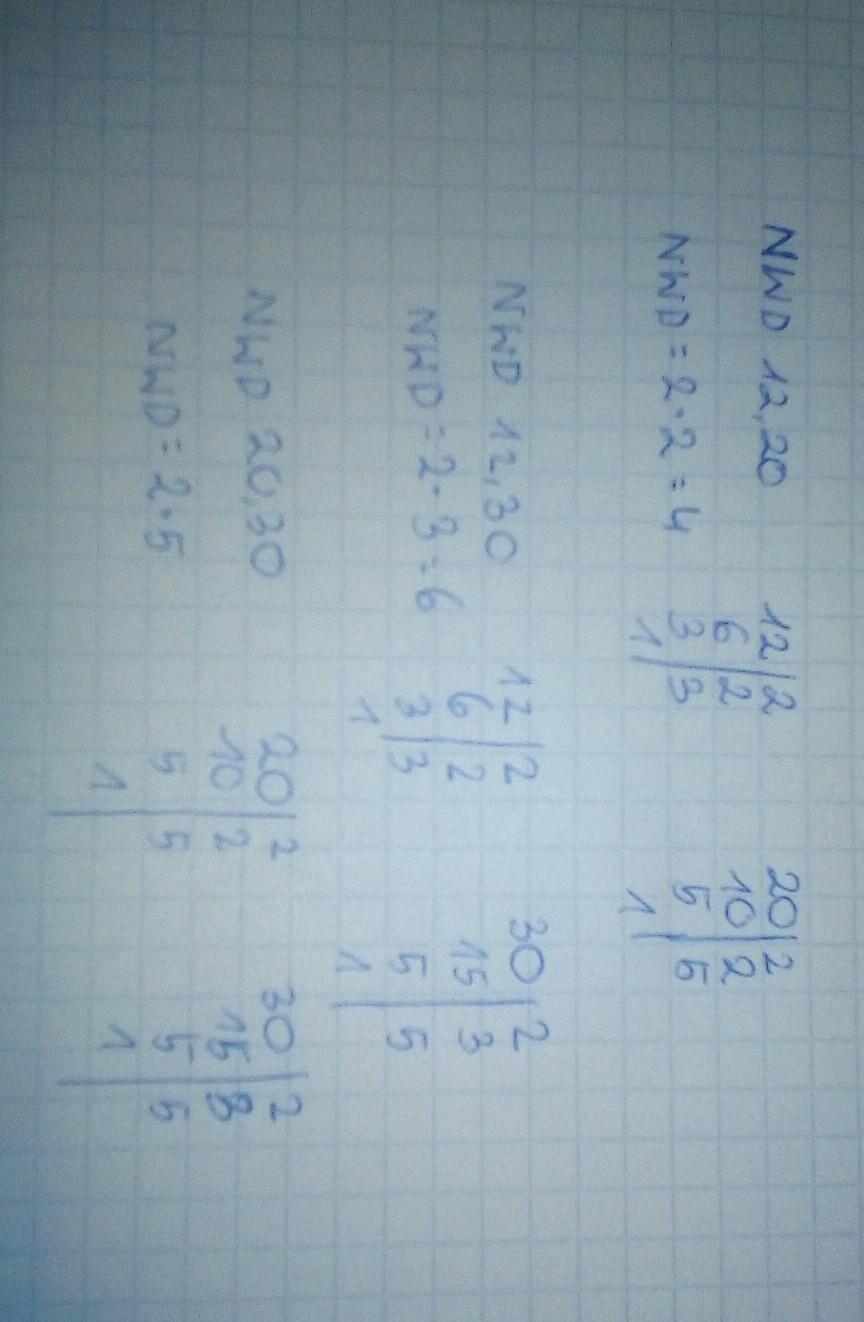 NWD 12,20 12|2 20|2
NWD = 2·2 = 4 6|2 10|2
3|3 5|5
1| 1|
NWD 12,30 12|2 30|2
NWD = 2·3 = 6 6|2 15|3
3|3 5|5
1| 1|
NWD 20,30 20|2 30|2
NWD = 2·5 10|2 15|3
5|5 5|5
1| 1|